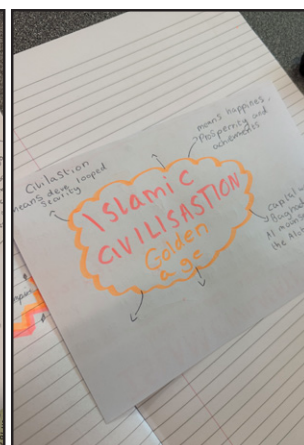 Civilastion
means deve looped
Security
means happines,
Prosperrity and
achiements
Islamic
CIVILISASTION
Golden
age
capital
Baghdad
Al
the